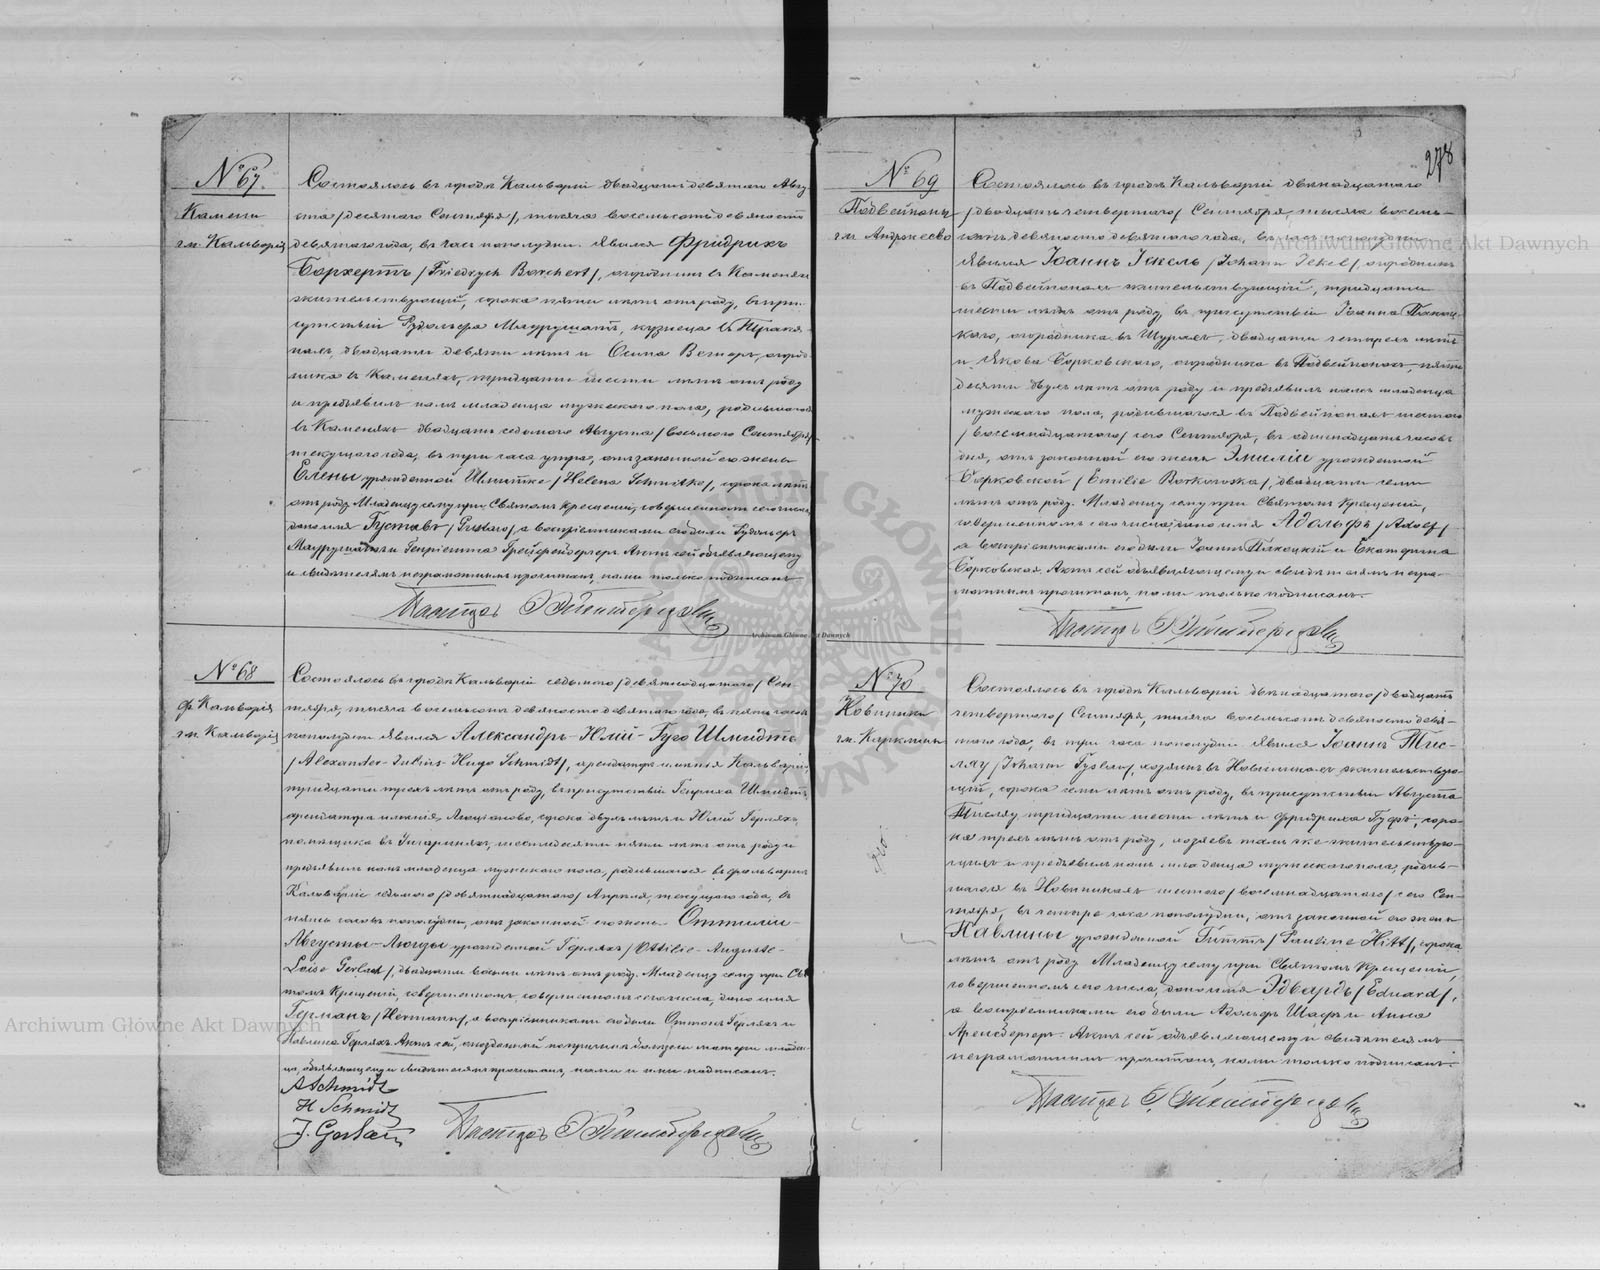 № 67.
Камени
гм. Кальварія
Состоялось въ городѣ Кальваріи двадцать девятаго Авгу-
ста /десятаго Сентября/, тысяча восемьсотъ девяносто
девятаго года, въ часъ пополудни. Явился Фридрихъ
Борхертъ /Friedrych Borchert/, огородникъ въ Каменяхъ
жительствующій, сорока пяти лѣтъ отъ роду, въ при-
сутствіи Рудольфа , кузнеца въ
двадцати девяти лѣтъ и Осипа , огород-
ника въ Каменяхъ, тридцати шести лѣтъ отъ роду
и предъявилъ намъ младенца мужескаго пола, родившагося
въ Каменяхъ двадцать седьмого Августа /восьмого Сентября/
текущаго года, въ три часа утра, отъ законной его жены
Елены урожденной Шмитке /Helena Schmitke/, сорока лѣтъ
отъ роду. Младенцу сему при Святомъ Крещеніи, совершенномъ сего числа,
дано имя Густавъ /Gustaw/, а воспріемниками его были Рудольфъ
и Генріетта Актъ сей объявляющему
и свидѣтелямъ неграмотнымъ прочитанъ, нами только подписанъ.
Пасторъ
№ 68
ф. Кальварія
гм. Кальварія
Состоялось въ городѣ Кальваріи седьмого /девятнадцатаго/ Сен-
тября, тысяча восемьсотъ девяносто девятаго года, въ пять часовъ
пополудни явился Александръ-Юлій-Гуго Шмидтъ
/Alexander-Julius-Hugo Schmidt/, арендаторъ имѣнія Кальварія,
тридцати трехъ лѣтъ отъ роду, въ присутствіи Генриха Шмидтъ,
арендатора имѣнія , сорока двухъ лѣтъ и Юлія Герляхъ
помѣщика въ , шестидесяти пяти лѣтъ отъ роду и
предъявилъ намъ младенца мужескаго пола, родившагося въ фольваркѣ
Кальваріи седьмого /девятнадцатаго/ Апрѣля, текущаго года, въ
пять часовъ пополудни, отъ законной его жены Оттиліи-
Августы-Луизы урожденной Герляхъ /Ottilie-Auguste-
Loise Gerlach/, двадцати восьми лѣтъ отъ роду. Младенцу сему при Свя-
томъ Крещеніи, совершенномъ сего числа, дано имя
Германъ /Hermann/, а воспріемниками его были Герляхъ и
Павлина Герляхъ. Актъ сей, опозданный по причинѣ болѣзни матери младен-
ца, объявляющему и свидѣтелямъ прочитанъ, нами и ими подписанъ.
ASchmidt
H Schmidt
J. Gerlach
Пасторъ
278
№ 69
Подвейпоня
гм Андржеево
Состоялось въ городѣ Кальваріи двѣнадцатаго
/двадцать четвертаго/ Сентября, тысяча восемь-
сотъ девяносто девятаго года, въ часъ пополудни
явился Іоаннъ Іекель /Johann Jekel/, огородникъ
въ жительствующій, тридцати
шести лѣтъ отъ роду, въ присутствіи Іоанна
огородника въ , двадцати четырехъ лѣтъ
и Якова Борковскаго, огородника въ , пяти-
десяти двухъ лѣтъ отъ роду и предъявилъ намъ младенца
мужескаго пола, родившагося въ шестого
/восемнадцатаго/ сего Сентября, въ одиннадцать часовъ
дня, отъ законной его жены Эмиліи урожденной
Борковской /Emilie Borkowska/, двадцати семи
лѣтъ отъ роду. Младенцу сему при Святомъ Крещеніи,
совершенномъ сего числа, дано имя Адольфъ /Adolf/
а воспріемниками его были Іоаннъ и Екатерина
Борковская. Актъ сей объявляющему и свидѣтелямъ негра-
мотнымъ прочитанъ, нами только подписанъ.
Пасторъ
№ 70
Новиники
гм.
Состоялось въ городѣ Кальваріи двѣнадцатаго /двадцать
четвертаго/ Сентября, тысяча восемьсотъ девяносто девя-
таго года, въ три часа пополудни явился Іоаннъ Тис-
ляу /Johann Tyslau/, хозяинъ въ Новиникахъ жительствую-
щій, сорока семи лѣтъ отъ роду, въ присутствіи Августа
Тисляу тридцати шести лѣтъ и Фридриха , соро-
ка трехъ лѣтъ отъ роду, хозяевъ тамъ же жительствую-
щихъ и предъявилъ намъ младенца мужескаго пола, родив-
шагося въ Новиникахъ шестого /восемнадцатаго/ сего Сен-
тября, въ четыре часа пополудни, отъ законной его жены
Павлины урожденной Гиттъ /Pauline Hitt/, сорока
лѣтъ отъ роду. Младенцу сему при Святомъ Крещеніи,
совершенномъ сего числа, дано имя Эдвардъ /Eduard/,
а воспріемниками его были Адольфъ и Анна
Актъ сей объявляющему и свидѣтелямъ
неграмотнымъ прочитанъ, нами только подписанъ.
Пасторъ
Archiwum Główne Akt Dawnych
Archiwum Główne Akt Dawnych
Archiwum Główne Akt Dawnych
ARCHIWUM GŁÓWNE AKT DAWNYCH